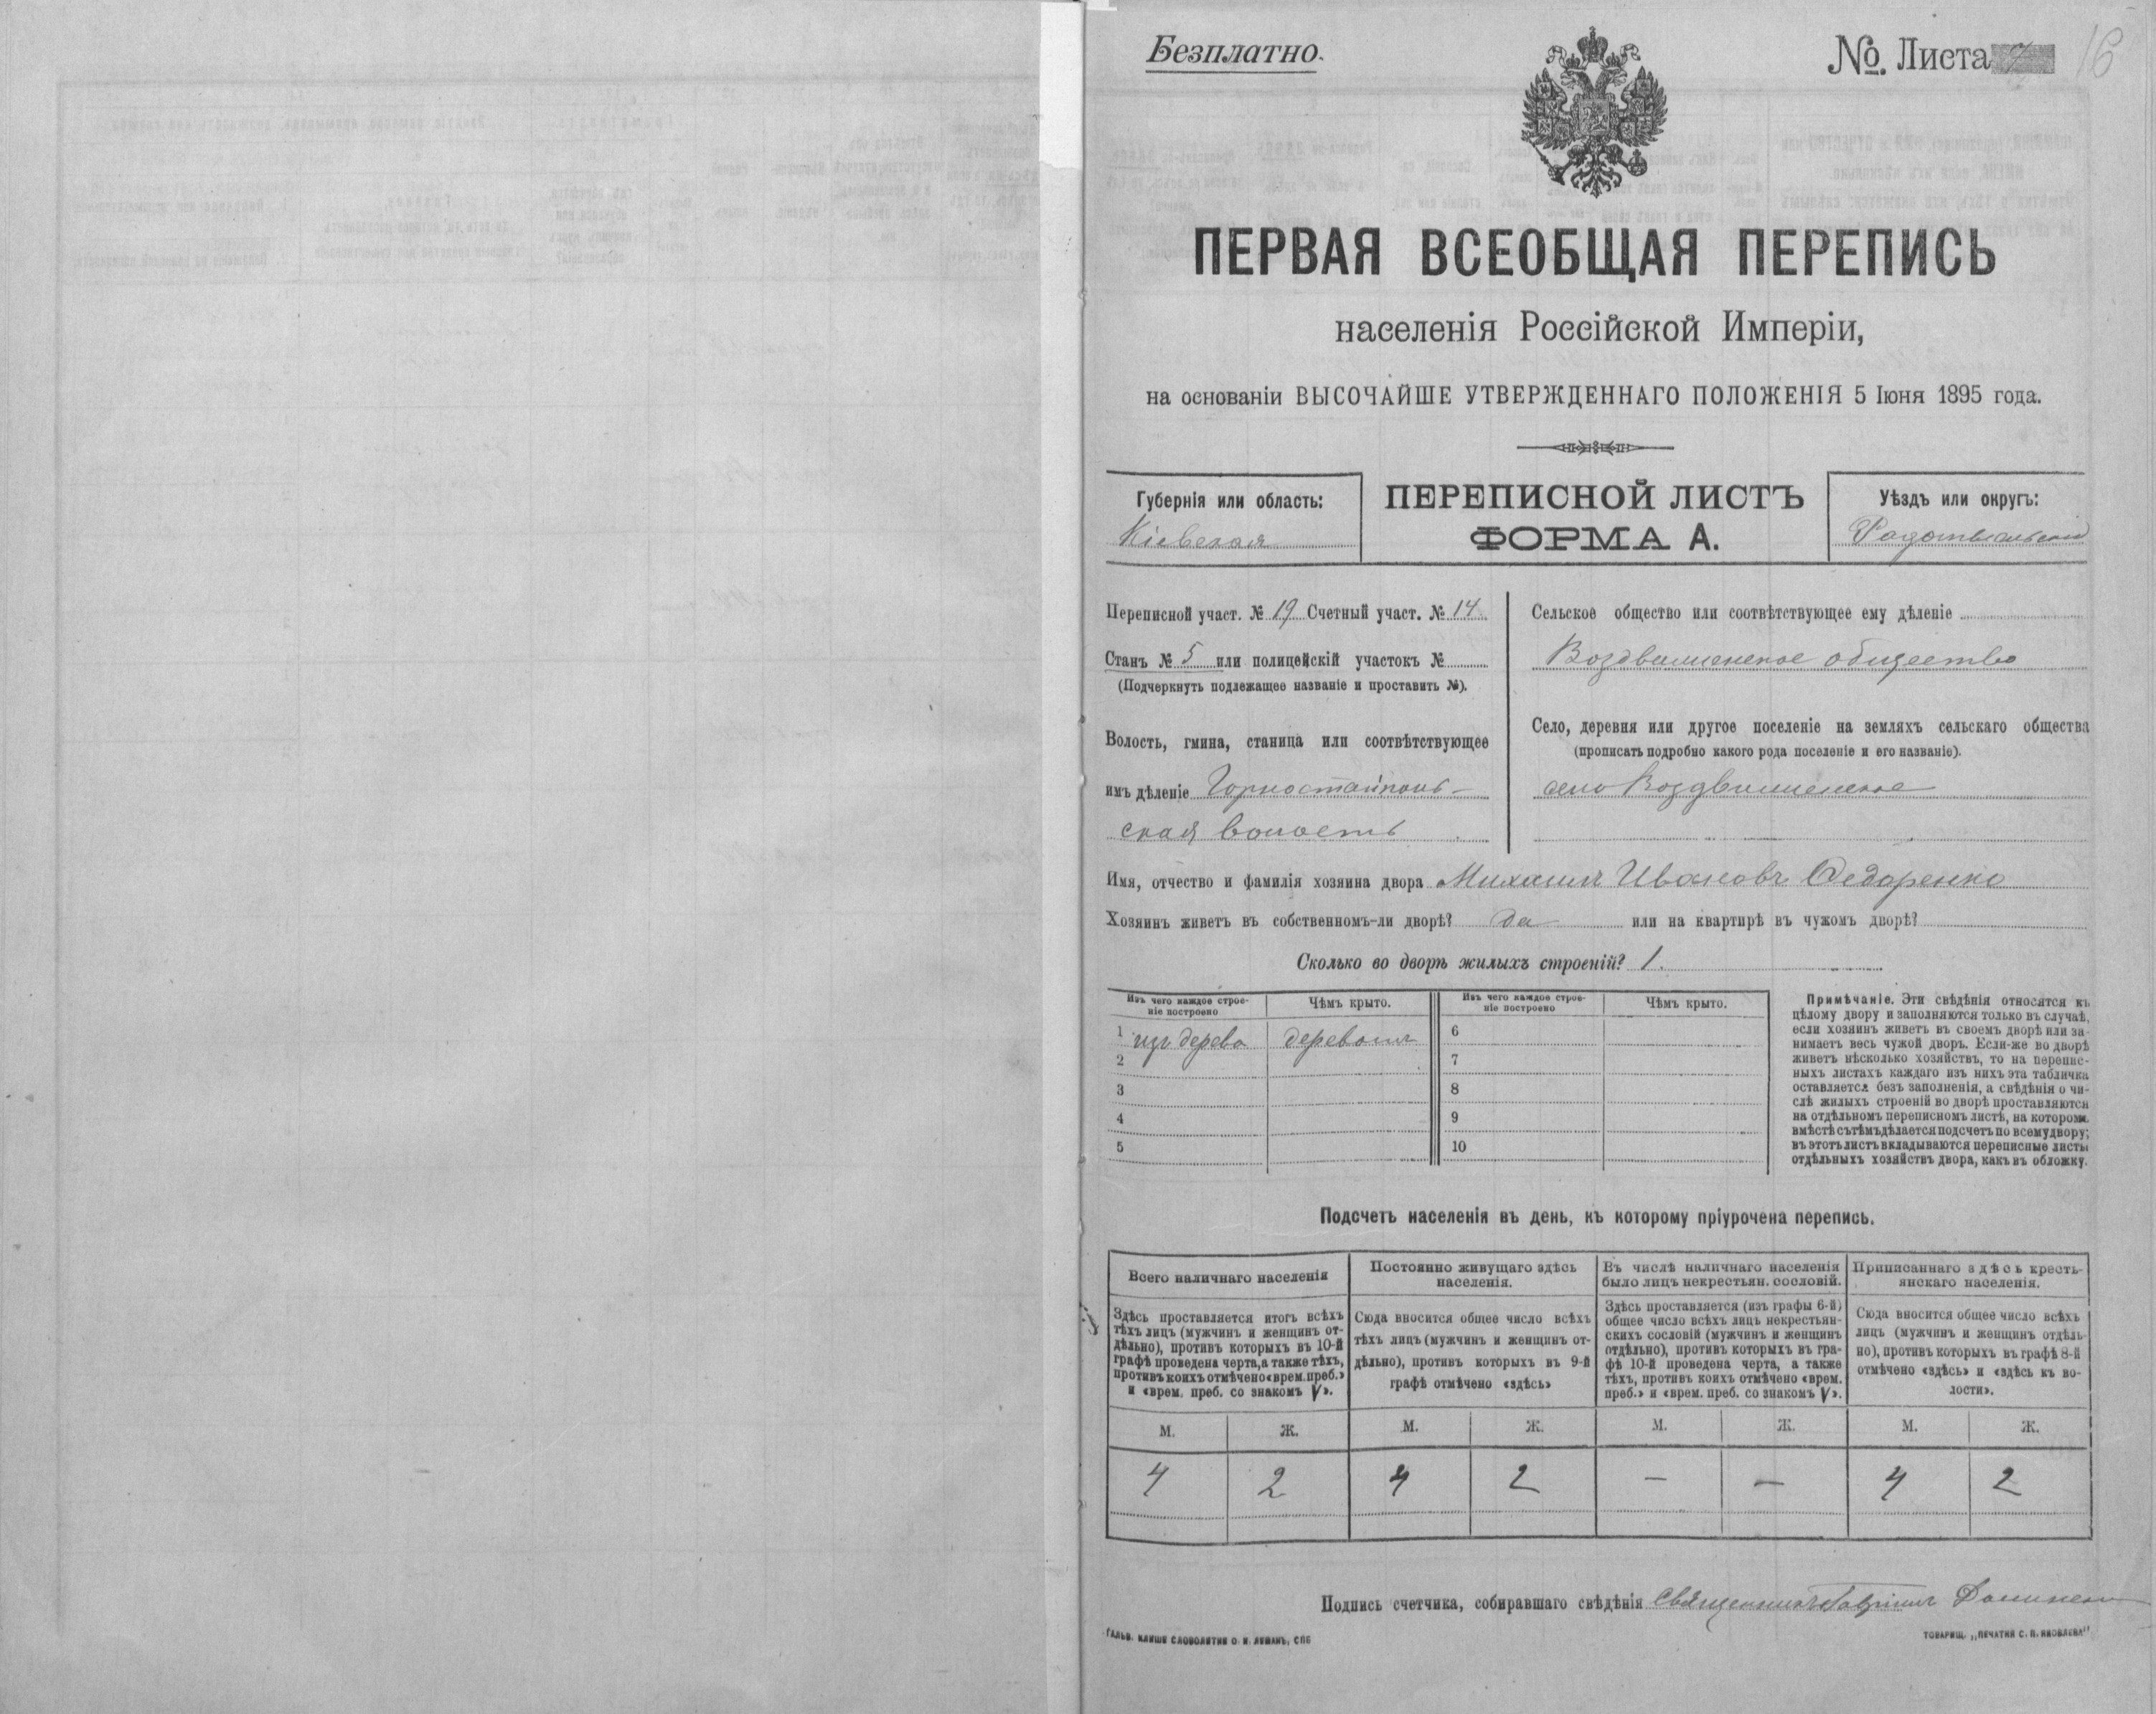 Безплатно.
№ Листа 7
16
ПЕРВАЯ ВСЕОБЩАЯ ПЕРЕПИСЬ
населенія Россійской Имперіи,
на основаніи ВЫСОЧАЙШЕ УТВЕРЖДЕННАГО ПОЛОЖЕНІЯ 5 Іюня 1895 года.
Губернія или область:
Кіевская
ПЕРЕПИСНОЙ ЛИСТЪ
ФОРМА А.
Уѣздъ или округъ:
Радомысльскій
Переписной участ. № 19 Счетный участ. № 14
Станъ № 5 или полицейскій участокъ №
(Подчеркнуть подлежащее названіе и проставить №).
Волость, гмина, станица или соотвѣтствующее
имъ дѣленіе Горностайполь-
ская волость
Сельское общество или соотвѣтствующее ему дѣленіе
Воздвиженское общество
Село, деревня или другое поселеніе на земляхъ сельскаго общества
(прописать подробно какого рода поселеніе и его названіе).
село Воздвиженское
Имя, отчество и фамилія хозяина двора Михаилъ Ивановъ Федоренко
Хозяинъ живетъ въ собственномъ-ли дворѣ? да или на квартирѣ въ чужомъ дворѣ?
Сколько во дворѣ жилыхъ строеній? 1.
Изъ чего каждое строе-
ніе построено
Чѣмъ крыто.
Изъ чего каждое строе-
ніе построено
Чѣмъ крыто.
1 изъ дерева деревомъ 6
2 7
3 8
4 9
5 10
Примѣчаніе. Эти свѣдѣнія относятся къ
цѣлому двору и заполняются только въ случаѣ,
если хозяинъ живетъ въ своемъ дворѣ или за-
нимаетъ весь чужой дворъ. Если-же во дворѣ
живетъ нѣсколько хозяйствъ, то на перепис-
ныхъ листахъ каждаго изъ нихъ эта табличка
оставляется безъ заполненія, а свѣдѣнія о чи-
слѣ жилыхъ строеній во дворѣ проставляются
на отдѣльномъ переписномъ листѣ, на которомъ
вмѣстѣ съ тѣмъ дѣлается подсчетъ по всему двору;
въ этотъ листъ вкладываются переписные листы
отдѣльныхъ хозяйствъ двора, какъ въ обложку.
Подсчетъ населенія въ день, къ которому пріурочена перепись.
Всего наличнаго населенія
Здѣсь проставляется итогъ всѣхъ
тѣхъ лицъ (мужчинъ и женщинъ от-
дѣльно), противъ которыхъ въ 10-й
графѣ проведена черта, а также тѣхъ,
противъ коихъ отмѣчено «врем. преб.»
и «врем. преб. со знакомъ V».
Постоянно живущаго здѣсь
населенія.
Сюда вносится общее число всѣхъ
тѣхъ лицъ (мужчинъ и женщинъ от-
дѣльно), противъ которыхъ въ 9-й
графѣ отмѣчено «здѣсь»
Въ числѣ наличнаго населенія
было лицъ некрестьян. сословій.
Здѣсь проставляется (изъ графы 6-й)
общее число всѣхъ лицъ некрестьян-
скихъ сословій (мужчинъ и женщинъ
отдѣльно), противъ которыхъ въ гра-
фѣ 10-й проведена черта, а также
тѣхъ, противъ коихъ отмѣчено «врем.
преб.» и «врем. преб. со знакомъ V».
Приписаннаго здѣсь кресть-
янскаго населенія.
Сюда вносится общее число всѣхъ
лицъ (мужчинъ и женщинъ отдѣль-
но), противъ которыхъ въ графѣ 8-й
отмѣчено «здѣсь» и «здѣсь къ во-
лости».
М. Ж. М. Ж. М. Ж. М. Ж.
4 2 4 2 — — 4 2
Подпись счетчика, собиравшаго свѣдѣнія Священникъ Гавріилъ
ГАЛЬВ. КЛИШЕ СЛОВОЛИТНИ О. И. ЛЕМАНЪ, СПБ
ТОВАРИЩ. „ПЕЧАТНЯ С. П. ЯКОВЛЕВА"